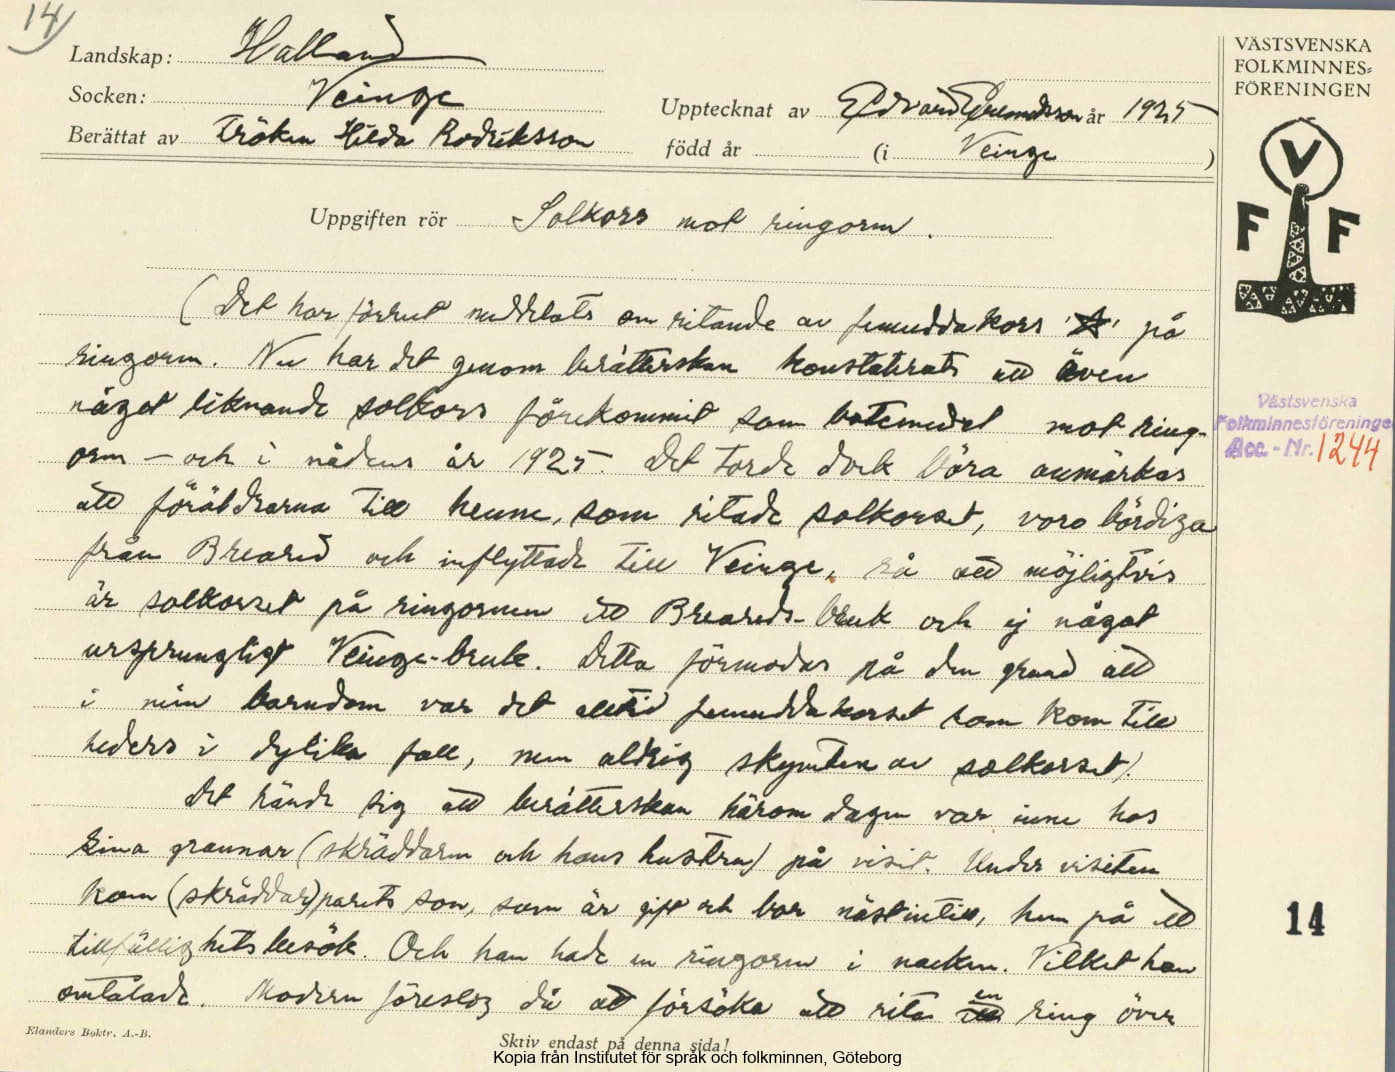 14
Landskap: Halland
Socken: Veinge
Upptecknat av Edvard år 1925
Berättat av Fröken Hilda Bodriksson
född år (i Veinge )
Uppgiften rör Solkors mot ringorm.
(Det har förrut meddelats om ritande av femuddakors '☆' på
ringorm. Nu har det genom berätterskan konstaterats att även
något liknande solkors förekommit som botemedel mot ring-
orm – och i nådens år 1925. Det torde dock böra anmärkas
att föräldrarna till henne, som ritade solkorset, voro bördiga
från Breared och inflyttade till Veinge, så att möjligtvis
är solkorset på ringormen ett Breareds-bruk och ej något
ursprungligt Veinge-bruk. Detta förmodas på den grund att
i min barndom var det alltid femuddakorset som kom till
heders i dylika fall, men aldrig skymten av solkorset).
Det hände sig att berätterskan härom dagen var inne hos
sina grannar (skräddaren och hans hustru) på visit. Under visiten
kom (skräddar)parets son, som är gift och bor nästintill, hem på ett
tillfällighetsbesök. Och han hade en ringorm i nacken. Vilket han
omtalade. Modern föreslog då att försöka att rita en ring över
Elanders Boktr. A.-B.
Skriv endast på denna sida!
Kopia från Institutet för språk och folkminnen, Göteborg
VÄSTSVENSKA
FOLKMINNES=
FÖRENINGEN
V
F F
Västsvenska
Folkminnesföreningen
Acc. - Nr. 1244
14